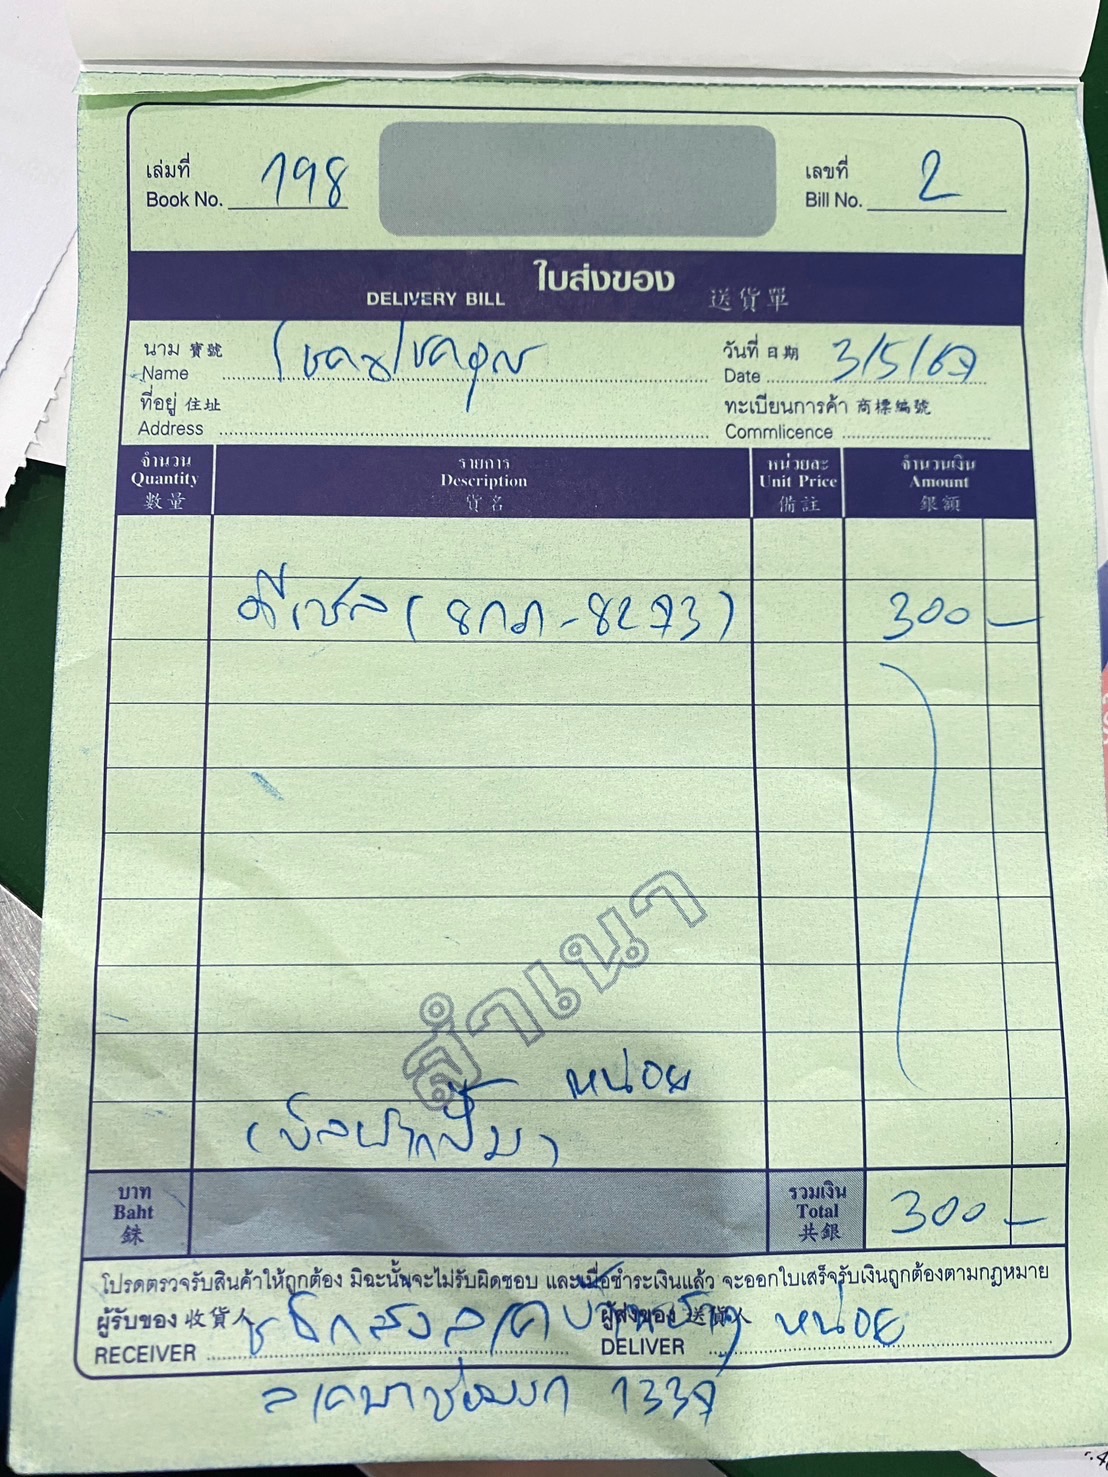 เล่มที่
Book No. 198
เลขที่
Bill No. 2
ใบส่งของ
DELIVERY BILL 送貨單
นาม 寶號
Name
วันที่ 日期
Date 3/5/67
ที่อยู่ 住址
Address
ทะเบียนการค้า 商標編號
Commlicence
จำนวน
Quantity
數量
รายการ
Description
貨名
หน่วยละ
Unit Price
備註
จำนวนเงิน
Amount
銀額
ดีเซล (8กภ-8273) 300 –
สำเนา
หน่อย
(บิลฝากปั๊ม)
บาท
Baht
銖
รวมเงิน
Total
共銀
300 –
โปรดตรวจรับสินค้าให้ถูกต้อง มิฉะนั้นจะไม่รับผิดชอบ และเมื่อชำระเงินแล้ว จะออกใบเสร็จรับเงินถูกต้องตามกฎหมาย
ผู้รับของ 收貨人
RECEIVER
ผู้ส่งของ 送貨人
DELIVER หน่อย
1337